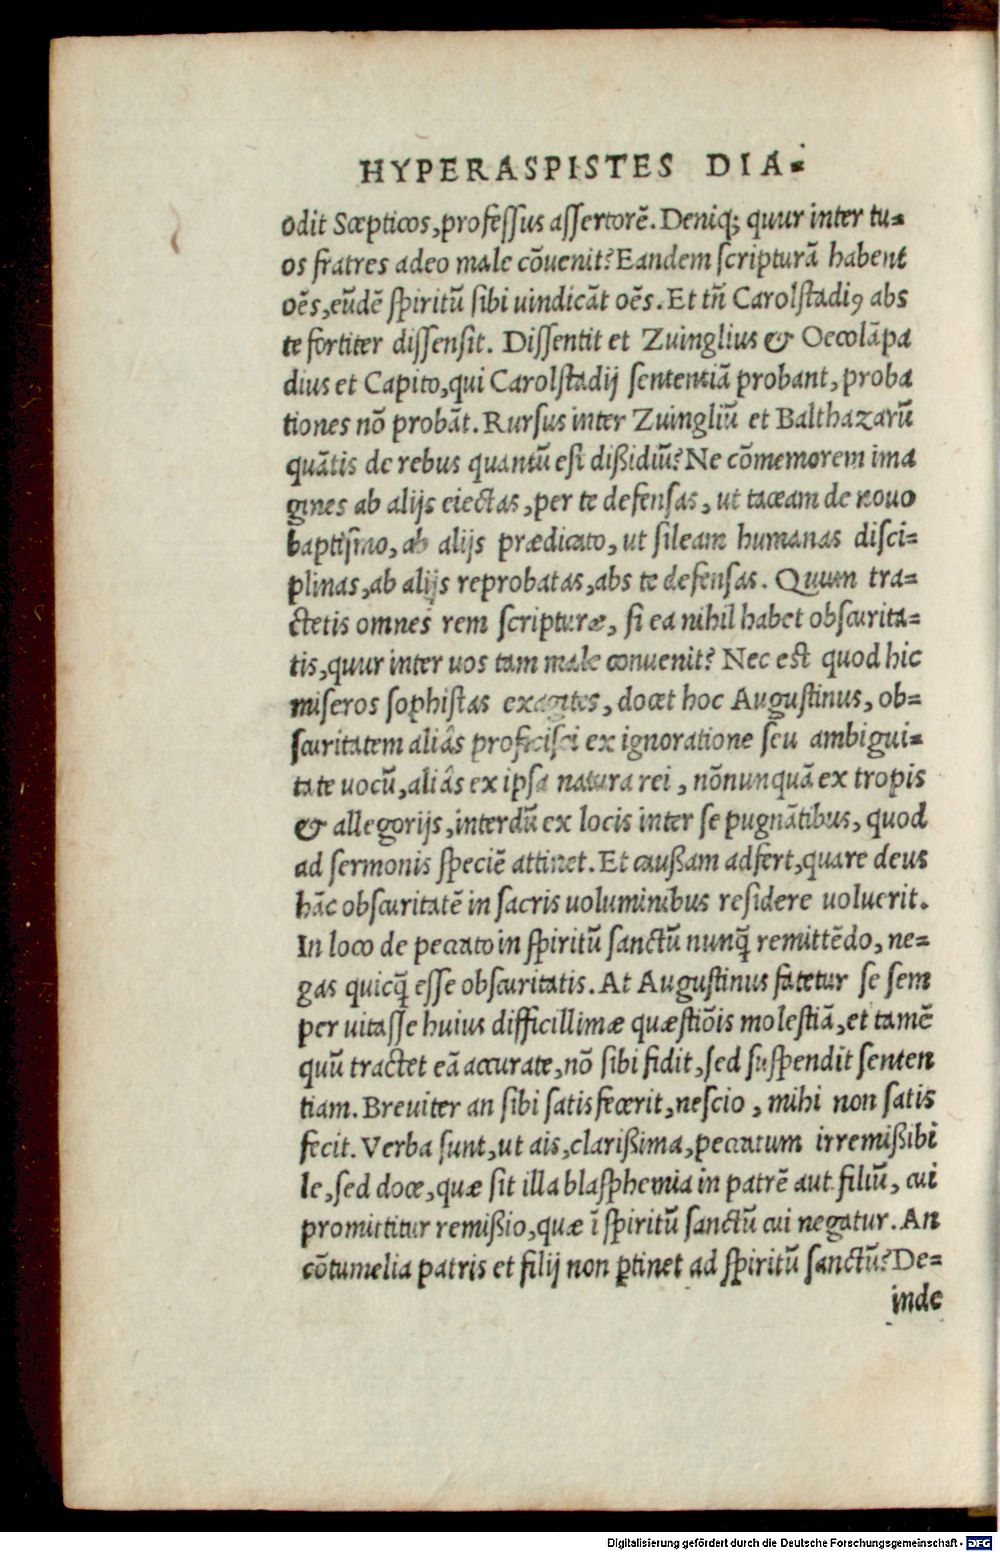 HYPERASPISTES DIA⸗
odit Scepticos, professus assertorē. Deniq; quur inter tu⸗
os fratres adeo male cōuenit? Eandem scripturā habent
oēs, eūdē spiritū sibi uindicāt oēs. Et tn̄ Carolstadiꝰ abs
te fortiter dissensit. Dissentit et Zuinglius & Oecolāpa
dius et Capito, qui Carolstadij sententiā probant, proba
tiones nō probāt. Rursus inter Zuingliū et Balthazarū
quātis de rebus quantū est dißidiū? Ne cōmemorem ima
gines ab alijs eiectas, per te defensas, ut taceam de nouo
baptismo, ab alijs prædicato, ut sileam humanas disci⸗
plinas, ab alijs reprobatas, abs te defensas. Quum tra⸗
ctetis omnes rem scripturæ, si ea nihil habet obscurita⸗
tis, quur inter uos tam male conuenit? Nec est quod hic
miseros sophistas exagites, docet hoc Augustinus, ob⸗
scuritatem aliâs proficisci ex ignoratione seu ambigui⸗
tate uocū, aliâs ex ipsa natura rei, nōnunquā ex tropis
& allegorijs, interdū ex locis inter se pugnātibus, quod
ad sermonis speciē attinet. Et caußam adfert, quare deus
hāc obscuritatē in sacris uoluminibus residere uoluerit.
In loco de peccato in spiritū sanctū nunq̄ remittēdo, ne⸗
gas quicq̄ esse obscuritatis. At Augustinus fatetur se sem
per uitasse huius difficillimæ quæstiōis molestiā, et tamē
quū tractet eā accurate, nō sibi fidit, sed suspendit senten
tiam. Breuiter an sibi satisfecerit, nescio, mihi non satis
fecit. Verba sunt, ut ais, clarißima, peccatum irremißibi
le, sed doce, quæ sit illa blasphemia in patrē aut filiū, cui
promittitur remißio, quæ ī spiritū sanctū cui negatur. An
cōtumelia patris et filij non ꝑtinet ad spiritū sanctū? De⸗
inde
Digitalisierung gefördert durch die Deutsche Forschungsgemeinschaft - DFG